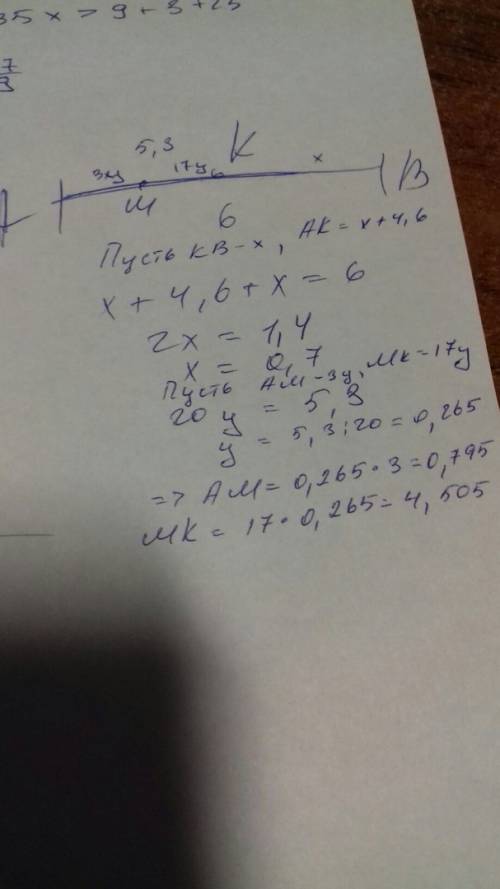 35x > 9 + 3 + 25
7
9
5,3
K
3y
17y
x
A
B
M
6
Пусть KB - x, AK = x+4,6
x + 4,6 + x = 6
2x = 1,4
x = 0,7
Пусть AM - 3y, MK - 17y
20 y = 5,3
y = 5,3 : 20 = 0,265
=> AM = 0,265 · 3 = 0,795
MK = 17 · 0,265 = 4,505